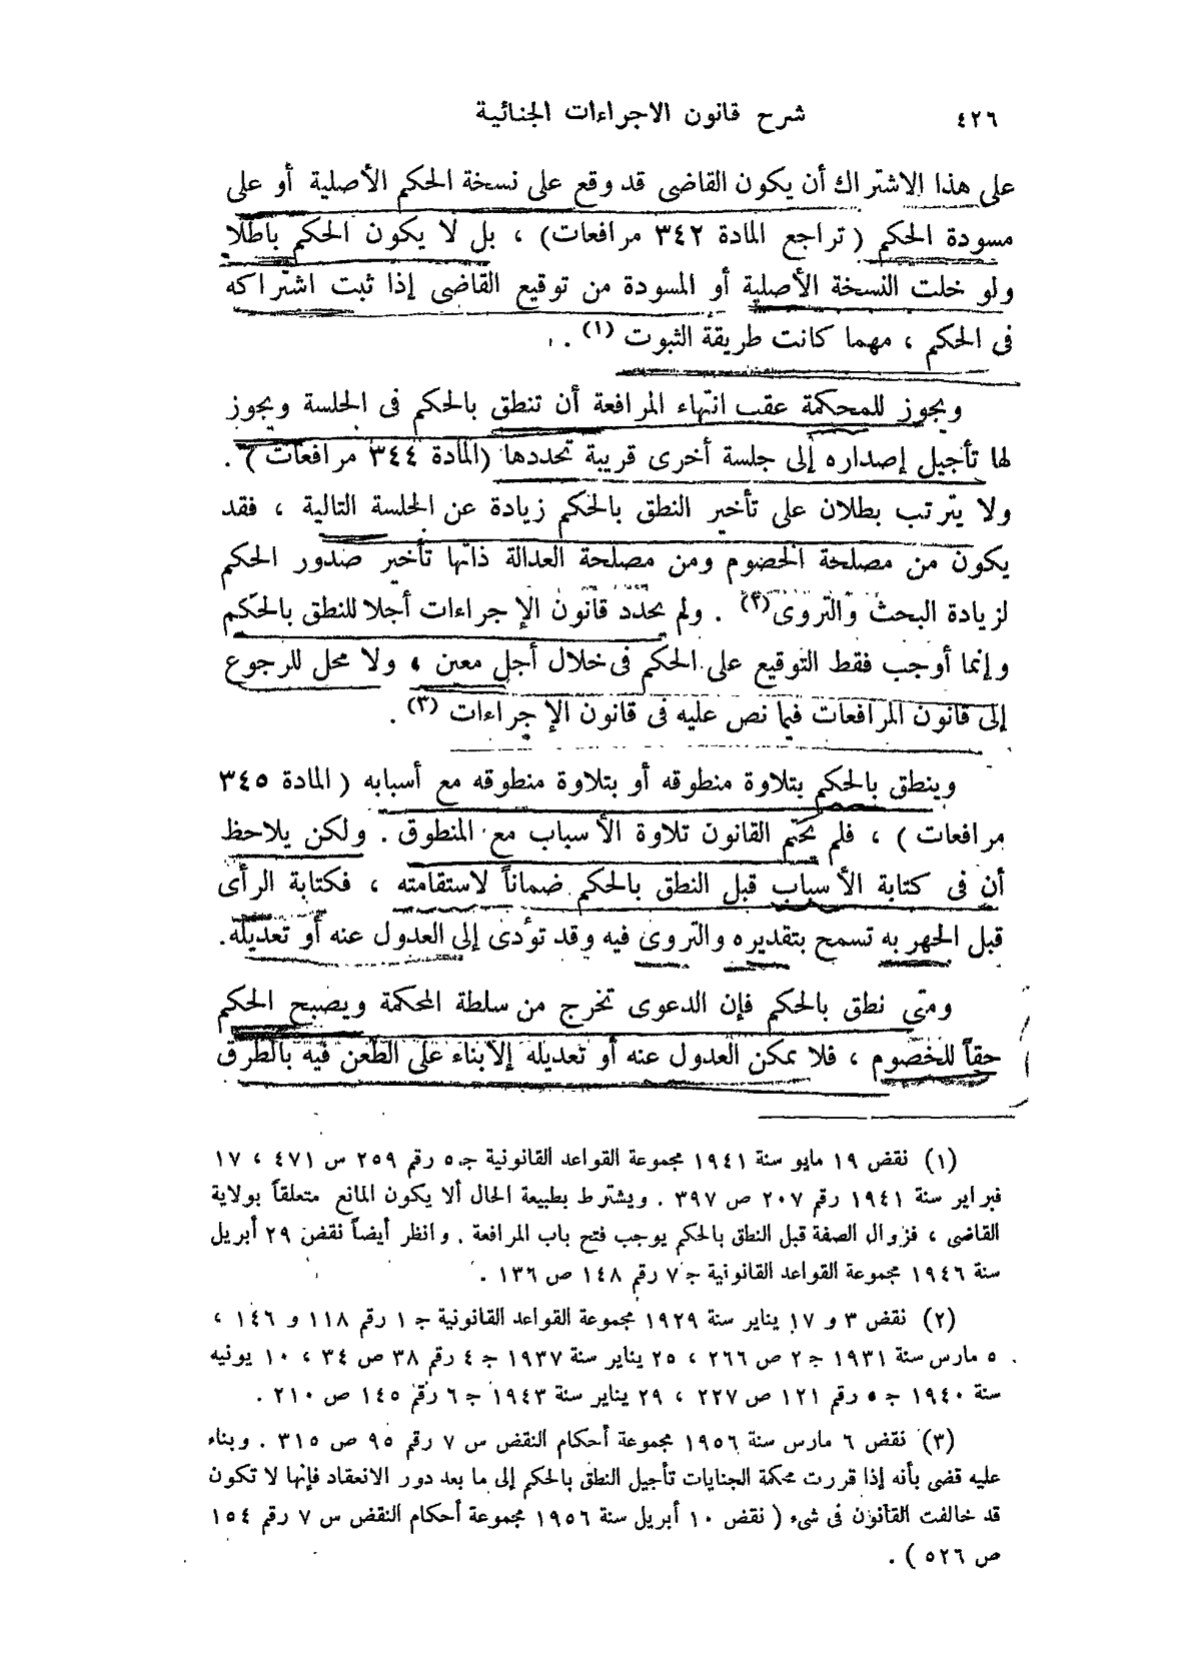 ٤٢٦
شرح قانون الاجراءات الجنائية
على هذا الاشتراك أن يكون القاضى قد وقع على نسخة الحكم الأصلية أو على
مسودة الحكم ( تراجع المادة ٣٤٢ مرافعات) ، بل لا يكون الحكم باطلا
ولو خلت النسخة الأصلية أو المسودة من توقيع القاضى إذا ثبت اشتراكه
فى الحكم ، مهما كانت طريقة الثبوت (١) .
ويجوز للمحكمة عقب انتهاء المرافعة أن تنطق بالحكم فى الجلسة ويجوز
لها تأجيل إصداره إلى جلسة أخرى قريبة تحددها (المادة ٣٤٤ مرافعات ) .
ولا يترتب بطلان على تأخير النطق بالحكم زيادة عن الجلسة التالية ، فقد
يكون من مصلحة الخصوم ومن مصلحة العدالة ذاتها تأخير صدور الحكم
لزيادة البحث والتروى (٢) . ولم يحدد قانون الإجراءات أجلا للنطق بالحكم
وإنما أوجب فقط التوقيع على الحكم فى خلال أجل معين ، ولا محل للرجوع
إلى قانون المرافعات فيما نص عليه فى قانون الإجراءات (٣) .
وينطق بالحكم بتلاوة منطوقه أو بتلاوة منطوقه مع أسبابه ( المادة ٣٤٥
مرافعات ) ، فلم يحتم القانون تلاوة الأسباب مع المنطوق . ولكن يلاحظ
أن فى كتابة الأسباب قبل النطق بالحكم ضماناً لاستقامته ، فكتابة الرأى
قبل الجهر به تسمح بتقديره والتروى فيه وقد تؤدى إلى العدول عنه أو تعديله.
ومتى نطق بالحكم فإن الدعوى تخرج من سلطة المحكمة ويصبح الحكم
حقاً للخصوم ، فلا يمكن العدول عنه أو تعديله إلا بناء على الطعن فيه بالطرق
(١) نقض ١٩ مايو سنة ١٩٤١ مجموعة القواعد القانونية جـ ٥ رقم ٢٥٩ س ٤٧١ ، ١٧
فبراير سنة ١٩٤١ رقم ٢٠٧ ص ٣٩٧ . ويشترط بطبيعة الحال ألا يكون المانع متعلقاً بولاية
القاضى ، فزوال الصفة قبل النطق بالحكم يوجب فتح باب المرافعة . وانظر أيضاً نقض ٢٩ أبريل
سنة ١٩٤٦ مجموعة القواعد القانونية جـ ٧ رقم ١٤٨ ص ١٣٦ .
(٢) نقض ٣ و ١٧ يناير سنة ١٩٢٩ مجموعة القواعد القانونية جـ ١ رقم ١١٨ و ١٤٦ ،
٥ مارس سنة ١٩٣١ جـ ٢ ص ٢٦٦ ، ٢٥ يناير سنة ١٩٣٧ جـ ٤ رقم ٣٨ ص ٣٤ ، ١٠ يونيه
سنة ١٩٤٠ جـ ٥ رقم ١٢١ ص ٢٢٧ ، ٢٩ يناير سنة ١٩٤٣ جـ ٦ رقم ١٤٥ ص ٢١٠ .
(٣) نقض ٦ مارس سنة ١٩٥٦ مجموعة أحكام النقض س ٧ رقم ٩٥ ص ٣١٥ . وبناء
عليه قضى بأنه إذا قررت محكمة الجنايات تأجيل النطق بالحكم إلى ما بعد دور الانعقاد فإنها لا تكون
قد خالفت القانون فى شىء ( نقض ١٠ أبريل سنة ١٩٥٦ مجموعة أحكام النقض س ٧ رقم ١٥٤
ص ٥٢٦ ) .